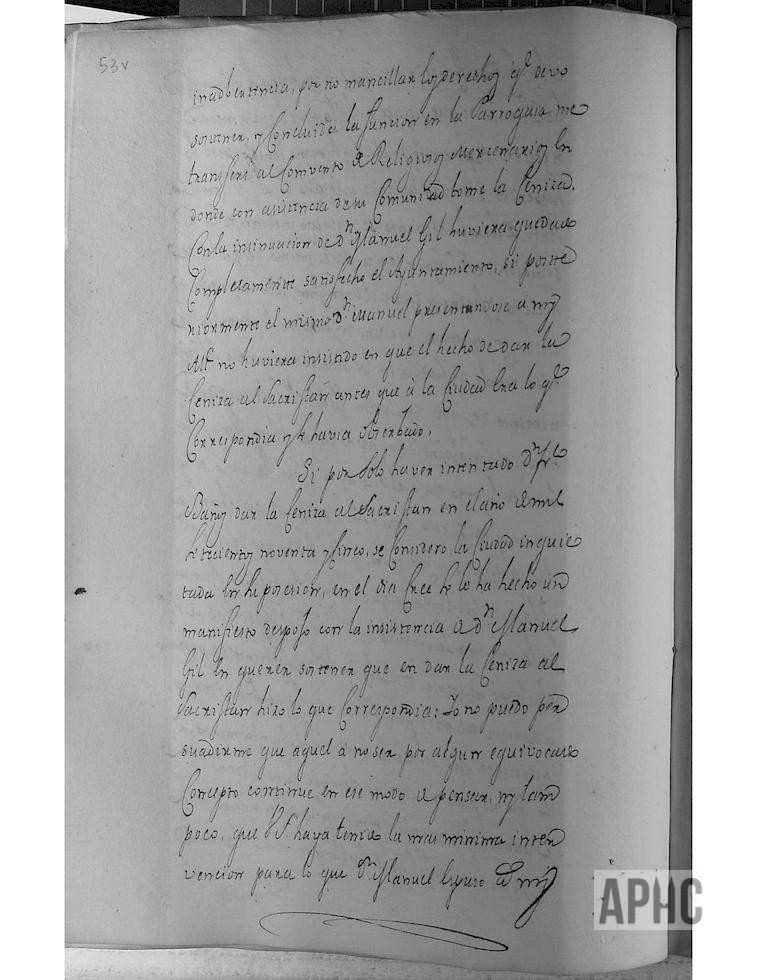 53v
inadbertencia, por no mancillar los derechos q.e devo
sostener, y Concluida la funcion en la Parroquia, me
transferi al Convento de Religiosos Mercenarios en
donde con asistencia de su Comunidad tome la Ceniza.
Con la insinuacion de d.n Manuel Gil huviera quedado
Completamente satisfecho el Ayuntamiento, si poste
riormente el mismo d.n Manuel presentandose a mis
no huviera insistido en que el hecho de dar la
Ceniza al Sacristan antes que à la Ciudad era lo q.e
Correspondia y se havia observado.
Si por solo haver intentado D.n
Bañ dar la Ceniza al Sacristan en el año de mil
setecientos noventa y Cinco, se Considero la Ciudad inquie
tada en su posesion, en el dia Cree lo ha hecho un
manifiesto despojo con la insistencia de d.n Manuel
Gil en querer sostener que en dar la Ceniza al
Sacristan hizo lo que Correspondia: Yo no puedo per
suadirme que aquel à no ser por algun equivocado
Concepto continue en ese modo de pensar, ny tam
poco, que V.S. haya tenido la mas minima inter
vencion para lo que D.n Manuel Espuso à mis
APHC